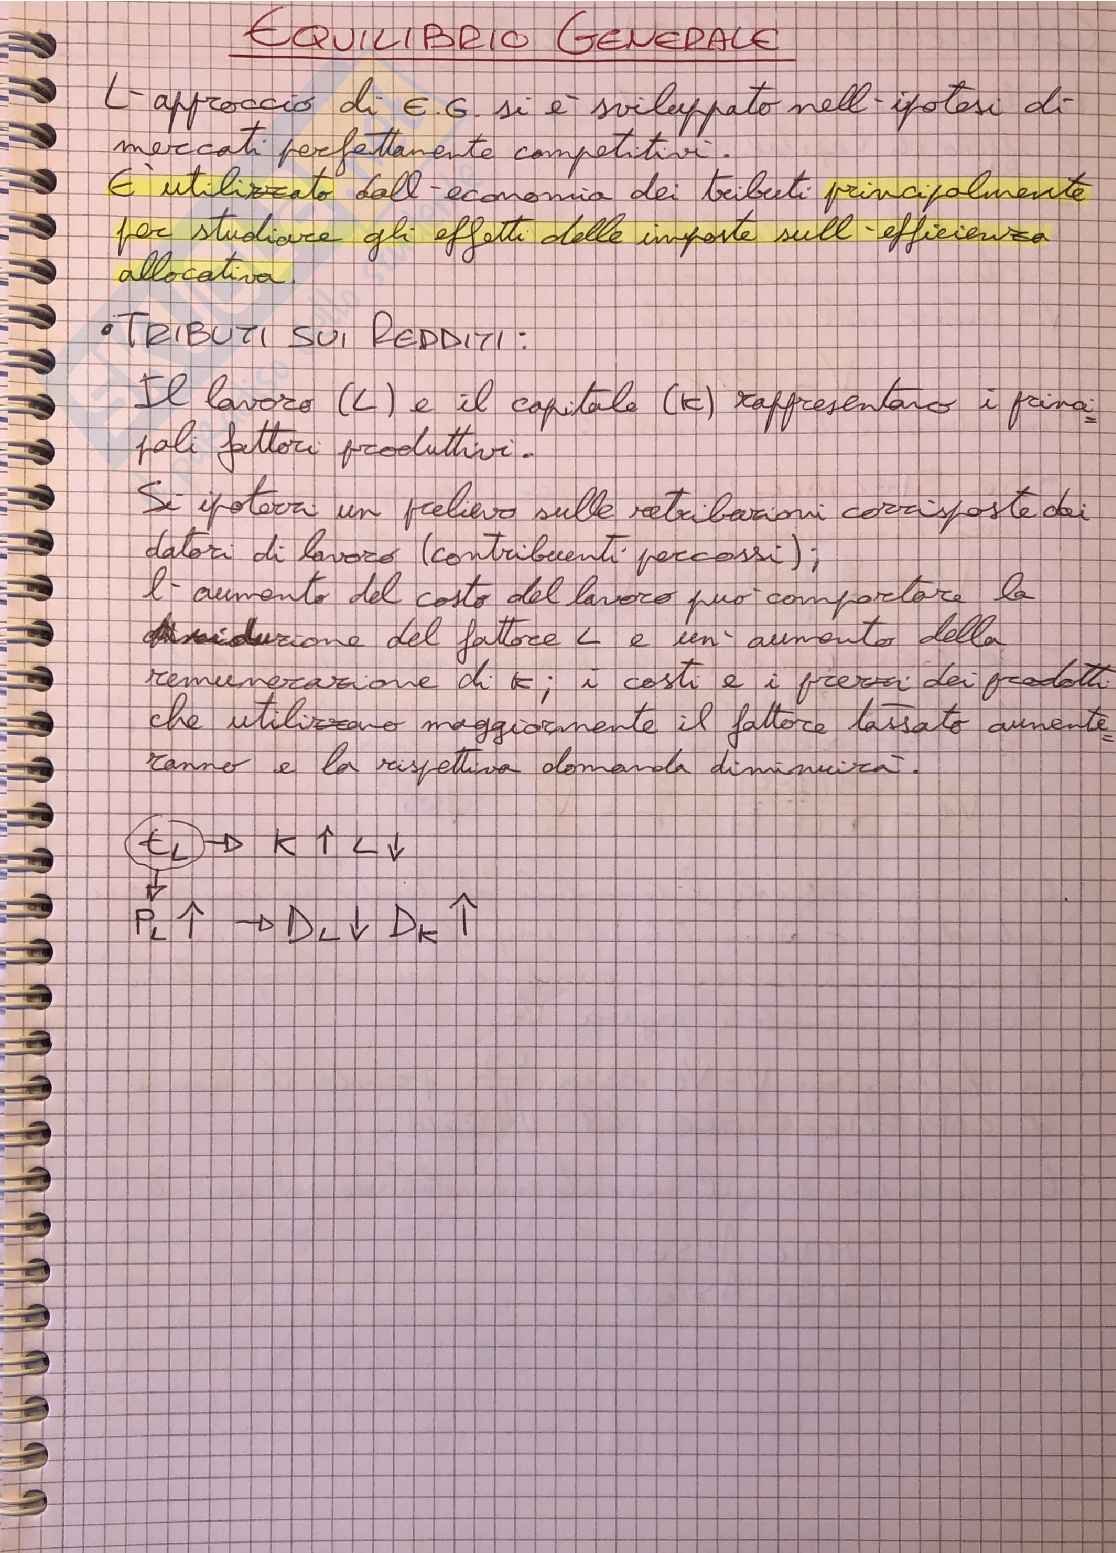 EQUILIBRIO GENERALE
L'approccio di E.G. si è sviluppato nell'ipotesi di
mercati perfettamente competitivi.
È utilizzato dall'economia dei tributi principalmente
per studiare gli effetti delle imposte sull'efficienza
allocativa.
• TRIBUTI SUI REDDITI:
Il lavoro (L) e il capitale (K) rappresentano i princi=
pali fattori produttivi.
Si ipotizzi un prelievo sulle retribuzioni corrisposte dai
datori di lavoro (contribuenti percossi);
l'aumento del costo del lavoro può comportare la
riduzione del fattore L e un'aumento della
remunerazione di K; i costi e i prezzi dei prodotti
che utilizzano maggiormente il fattore tassato aumente=
ranno e la rispettiva domanda diminuirà.
tL → K ↑ L ↓
↓
PL ↑ → DL ↓ DK ↑